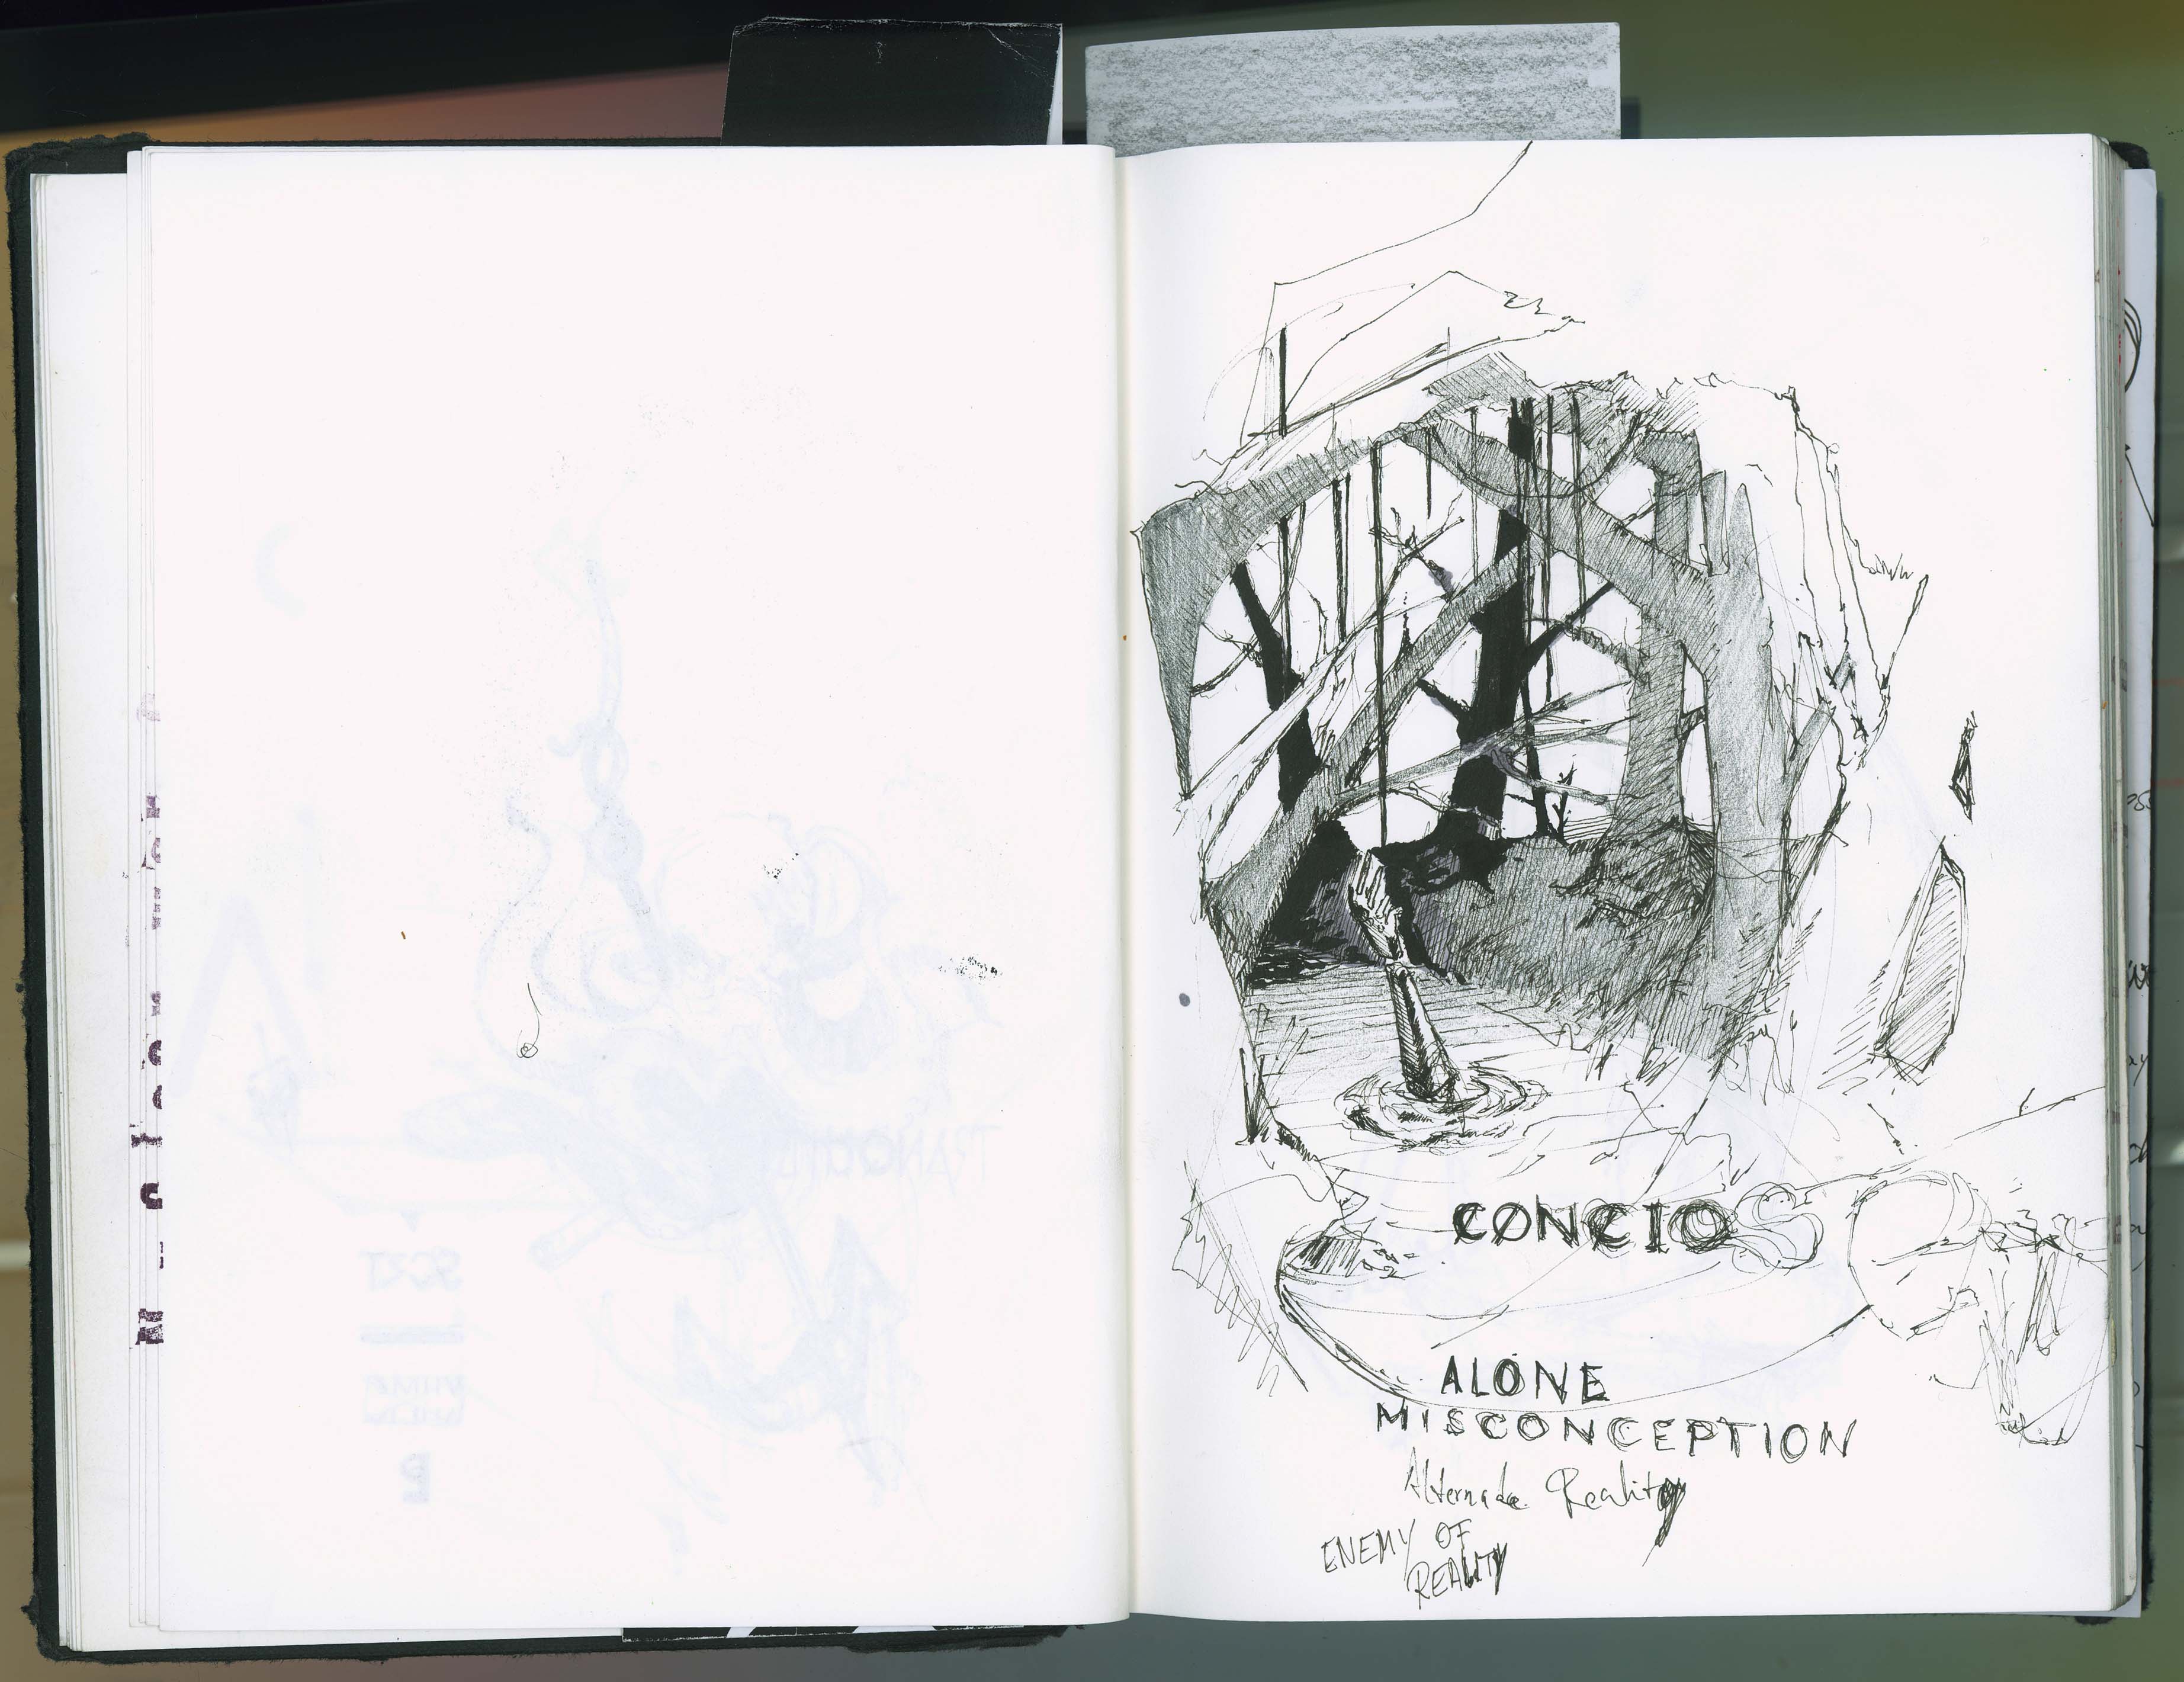 CONCIO
ALONE
MISCONCEPTION
Alternate Reality
ENEMY OF
REALITY